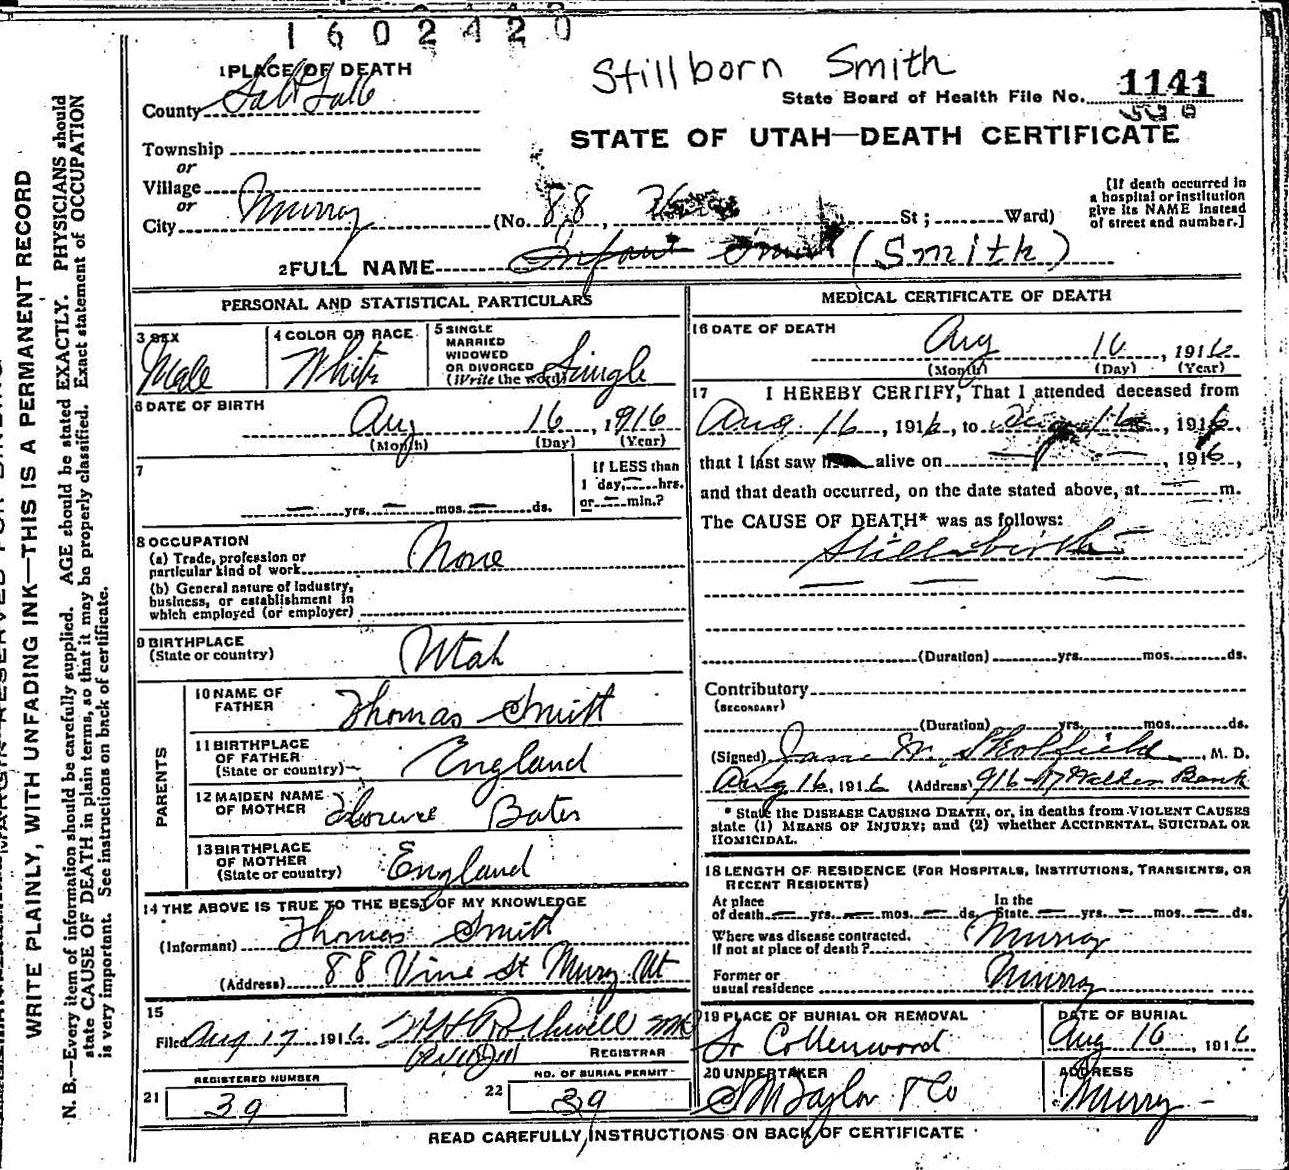 1 6 0 2 4 2 0
Stillborn Smith
1 PLACE OF DEATH
County Salt Lake
State Board of Health File No. 1141
STATE OF UTAH—DEATH CERTIFICATE
Township
or
Village
or
City Murray (No. 88 St; Ward)
[If death occurred in a hospital or institution give its NAME instead of street and number.]
2 FULL NAME Infant Smith (Smith)
PERSONAL AND STATISTICAL PARTICULARS
3 SEX Male
4 COLOR OR RACE White
5 SINGLE MARRIED WIDOWED OR DIVORCED (Write the word) Single
6 DATE OF BIRTH Aug 16, 1916
(Month) (Day) (Year)
7 — yrs. — mos. — ds.
If LESS than 1 day, — hrs. or — min.?
8 OCCUPATION
(a) Trade, profession or particular kind of work None
(b) General nature of industry, business, or establishment in which employed (or employer)
9 BIRTHPLACE (State or country) Utah
PARENTS
10 NAME OF FATHER Thomas Smith
11 BIRTHPLACE OF FATHER (State or country) England
12 MAIDEN NAME OF MOTHER Florence Bates
13 BIRTHPLACE OF MOTHER (State or country) England
14 THE ABOVE IS TRUE TO THE BEST OF MY KNOWLEDGE
(Informant) Thomas Smith
(Address) 88 Vine St Murry Ut
15 Filed Aug 17, 1916
REGISTRAR
REGISTERED NUMBER
21 39
NO. OF BURIAL PERMIT
22 39
MEDICAL CERTIFICATE OF DEATH
16 DATE OF DEATH
Aug 16, 1916
(Month) (Day) (Year)
17 I HEREBY CERTIFY, That I attended deceased from
Aug. 16, 1916, to Aug 16, 1916,
that I last saw h alive on —, 1916,
and that death occurred, on the date stated above, at — m.
The CAUSE OF DEATH* was as follows:
Stillbirth
(Duration) yrs. mos. ds.
Contributory
(SECONDARY)
(Duration) yrs. mos. ds.
(Signed) Jane M. Skolfield, M. D.
Aug 16, 1916 (Address) 916-17 Walker Bank
* State the DISEASE CAUSING DEATH, or, in deaths from VIOLENT CAUSES
state (1) MEANS OF INJURY; and (2) whether ACCIDENTAL, SUICIDAL OR
HOMICIDAL.
18 LENGTH OF RESIDENCE (FOR HOSPITALS, INSTITUTIONS, TRANSIENTS, OR
RECENT RESIDENTS)
At place of death — yrs. — mos. — ds. In the State — yrs. — mos. — ds.
Where was disease contracted.
If not at place of death? Murray
Former or usual residence Murray
19 PLACE OF BURIAL OR REMOVAL
DATE OF BURIAL
Aug 16, 1916
20 UNDERTAKER
Taylor & Co
ADDRESS
Murray
READ CAREFULLY INSTRUCTIONS ON BACK OF CERTIFICATE
WRITE PLAINLY, WITH UNFADING INK—THIS IS A PERMANENT RECORD
N. B.—Every item of information should be carefully supplied. AGE should be stated EXACTLY. PHYSICIANS should
state CAUSE OF DEATH in plain terms, so that it may be properly classified. Exact statement of OCCUPATION
is very important. See instructions on back of certificate.